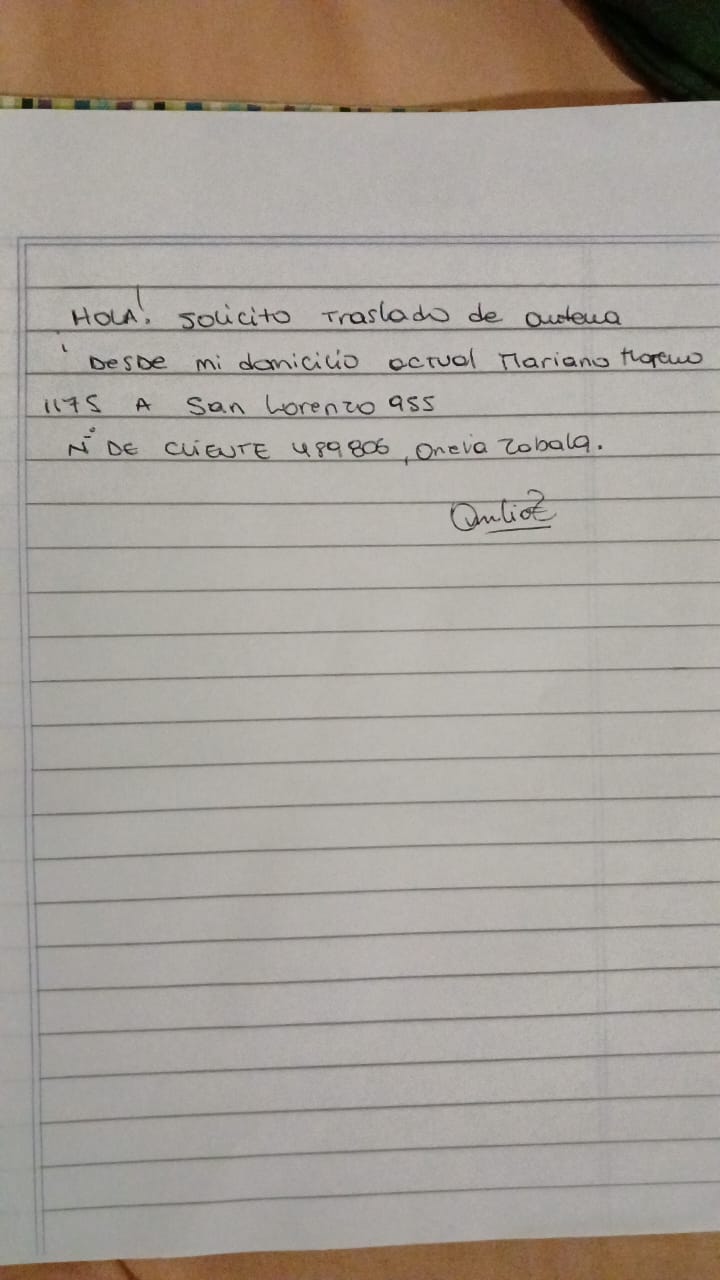 HOLA! solicito Traslado de antena
DESDE mi domicilio actual Mariano Moreno
1175 A San Lorenzo 955
N° DE CLIENTE 489806, Oneia Zobala.